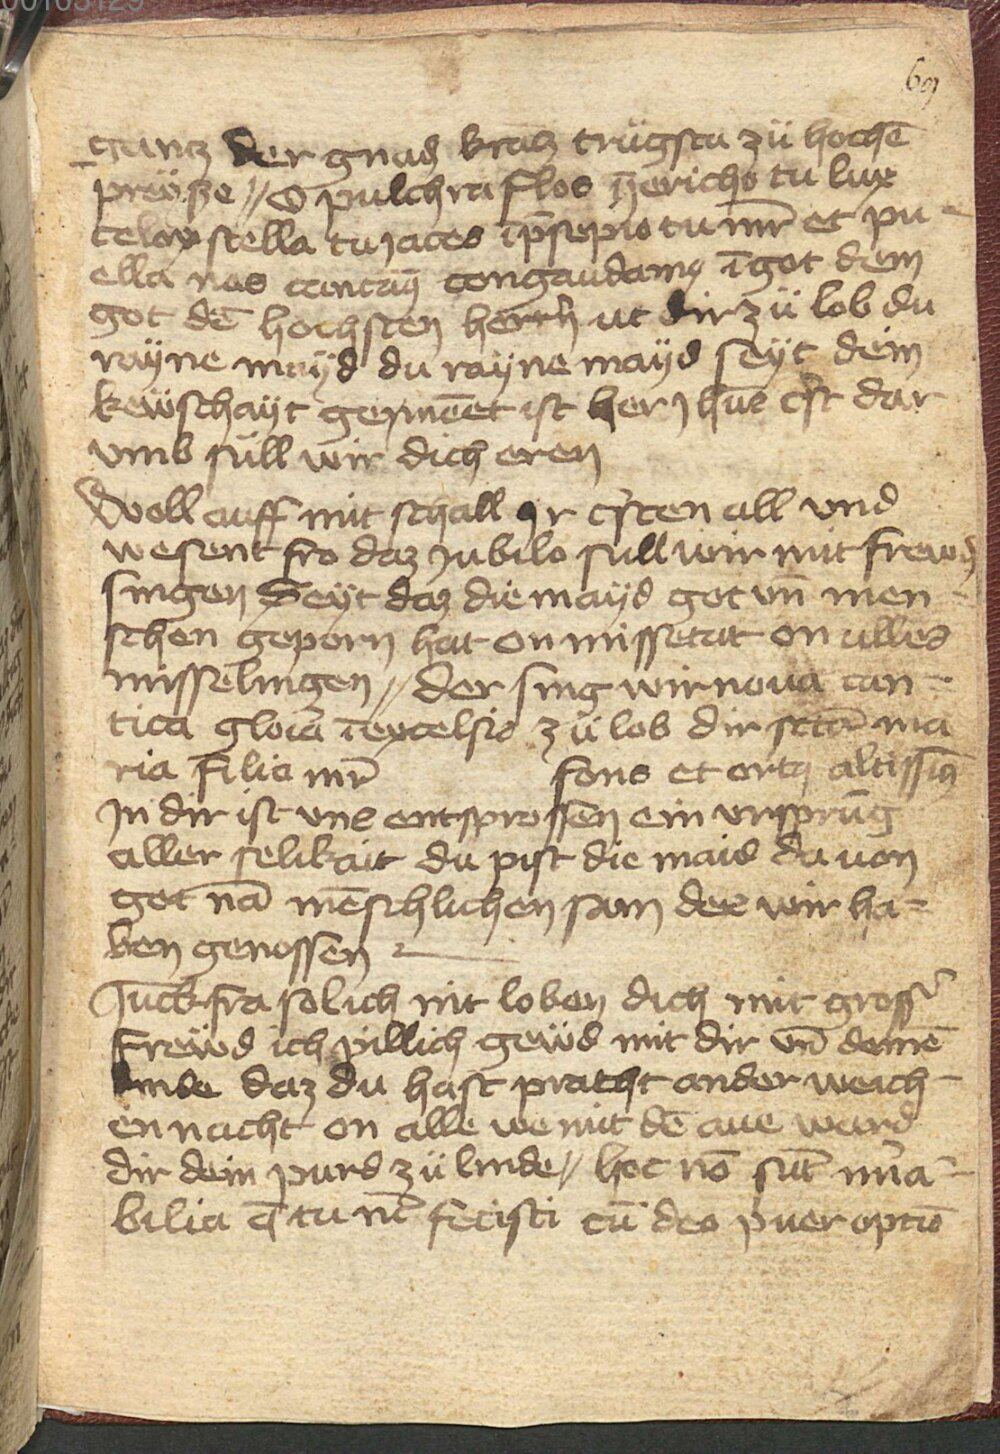 00105129
69
gantz der gnad kra͞tz trügsta zü hoche͞
preÿse // O pulchra flos Jericho tu lux
celox stella tu jaces i͞ p͞sepio tu m͞r et pu-
ella nos cantan congaudam9 i͞ got dem
got de͞ hochsten herrn ut dir zü lob du
raÿne maÿd du raÿne mayd seÿt dein
kewschayt geyme͞et ist her Jh͞us c͞st dar
vmb süll wir dich eren
Woll auff mit schall Jr c͞sten all vnd
wesent fro daz Jubilo süll wir mit frewd
singen Seyt daz die mayd got vn͞ men-
schen geporn hat on missetat on alles
misselingen // der sing wir noua can-
tica glo͞ia i͞ excelsis zü lob dir sc͞ta ma
ria filia m͞r fons et ort9 altissi͞
Jn dir ist vns entsprossen ein vrspru͞g
aller selikait du pist die maid da von
got na͞ me͞schlichen san der wir ha-
ben genossen
Ju͞ckfra solich nit loben dich mit gross͛
frewd ich pillich gewd mit dir vn͞ deine͞
kinde daz du hast pracht an der weich-
en nacht on alle we mit de͞ aue ward
dir dein purd zü linde // hoc no͞ su͞t mi͛a-
bilia q͞ tu m͞r fecisti cu͞ deo puer optio͞